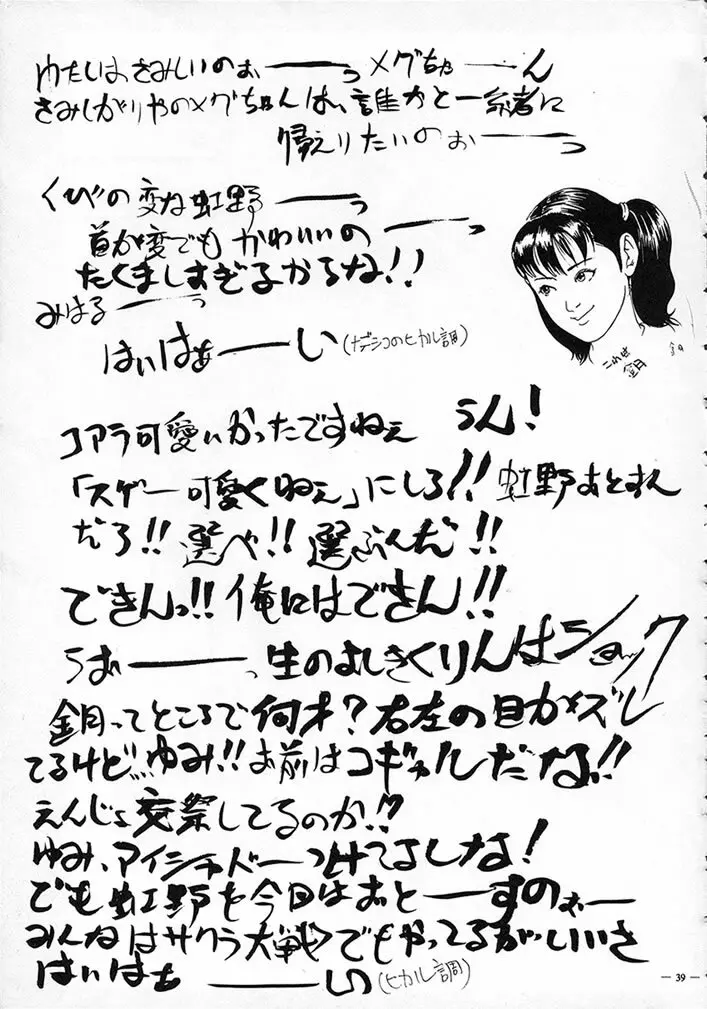 わたしはさみしいのぉーーっメグちゃーん
さみしがりやのメグちゃんは、誰かと一緒に
帰えりたいのぉーーっ
くびの変な虹野ーーっ
首が変でもかわいいのーーっ
たくましすぎるからな!!
みはるーーっ
はぃはぁーーい(ナデシコのヒカル調)
これは
鏡
コアラ可愛いかったですねぇ うん!
「スゲー可愛くねぇ」にしろ!! 虹野おとすん
だろ!! 選べ!! 選ぶんだ!!
できんっ!! 俺にはできん!!
うおーーっ生のよしきくりんはショック
ってところで何才?右左の目がズレ
てるけど…ゆみ!!お前はコギャルだな!!
えんじょ交祭してるのか!?
ゆみ、アイシャドーつけてよしな!
でも虹野を今日はおとーーすのぉー
みんなはサクラ大戦でもやってるがいいさ
はぃはぁーーい(ヒカル調)
— 39 —